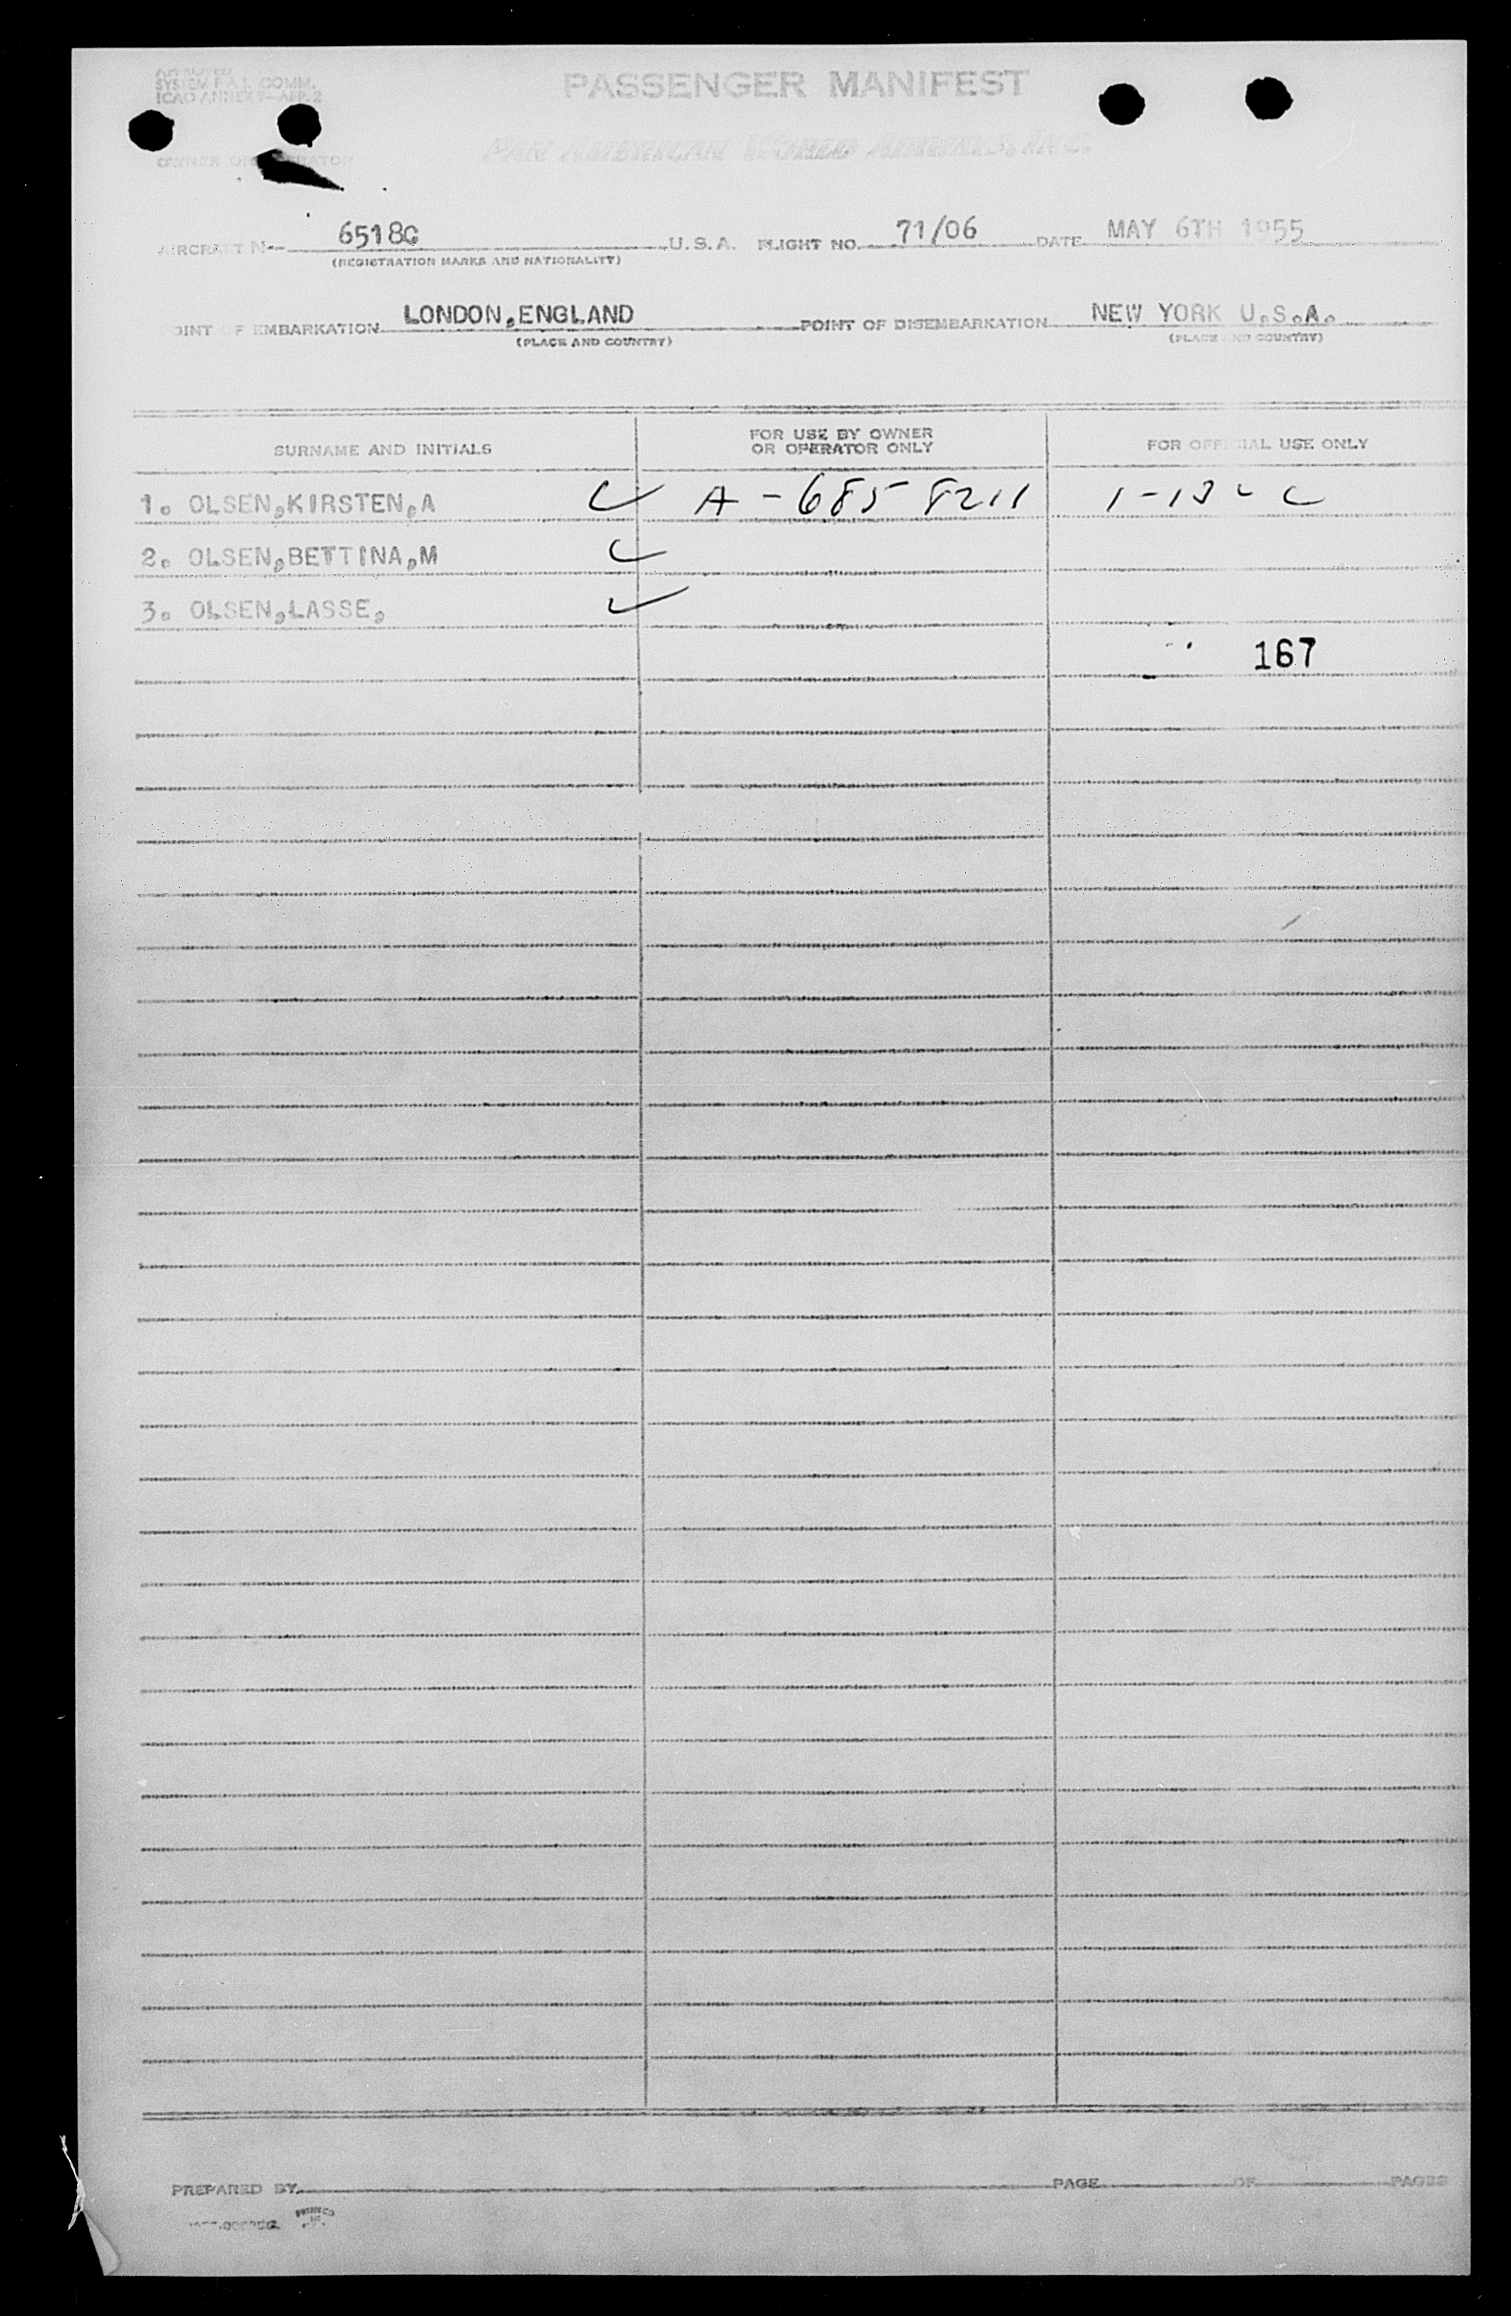 APPROVED
SYSTEM F.A.L. COMM.
ICAO ANNEX 9—APP. 2
PASSENGER MANIFEST
OWNER OR OPERATOR
PAN AMERICAN WORLD AIRWAYS, INC.
AIRCRAFT N- 6518C U.S.A. FLIGHT NO. 71/06 DATE MAY 6TH 1955
(REGISTRATION MARKS AND NATIONALITY)
POINT OF EMBARKATION LONDON,ENGLAND POINT OF DISEMBARKATION NEW YORK U.S.A.
(PLACE AND COUNTRY) (PLACE AND COUNTRY)
SURNAME AND INITIALS FOR USE BY OWNER OR OPERATOR ONLY FOR OFFICIAL USE ONLY
1. OLSEN,KIRSTEN,A A-6858211
2. OLSEN,BETTINA,M
3. OLSEN,LASSE,
167
PREPARED BY PAGE OF PAGES
PRINTED IN